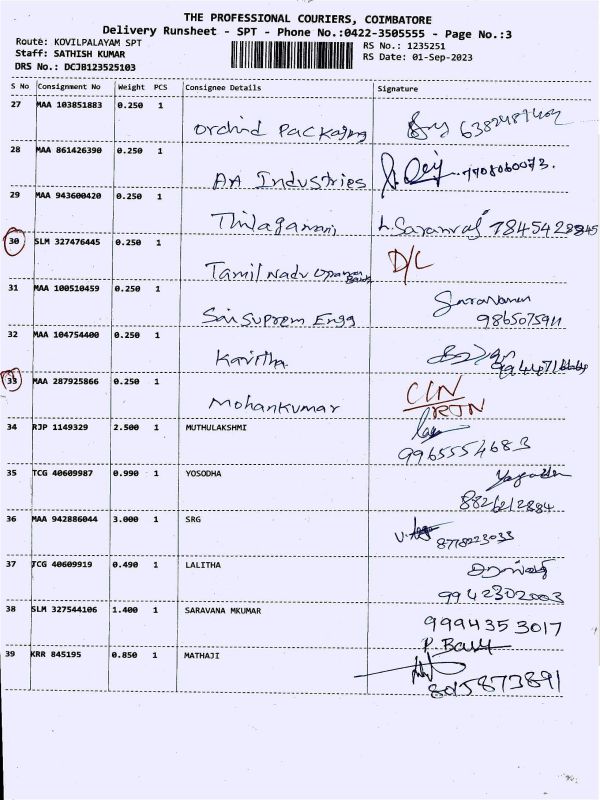 THE PROFESSIONAL COURIERS, COIMBATORE
Delivery Runsheet - SPT - Phone No.:0422-3505555 - Page No.:3
Route: KOVILPALAYAM SPT
Staff: SATHISH KUMAR
DRS No.: DCJB123525103
RS No.: 1235251
RS Date: 01-Sep-2023
S No Consignment No Weight PCS Consignee Details Signature
27 MAA 103851883 0.250 1
Orchid Packaging
28 MAA 861426390 0.250 1
AA Industries 7708060073.
29 MAA 943600420 0.250 1
Thilagamani L.Saranraj
30 SLM 327476445 0.250 1
Tamil Nadu D/C
31 MAA 100510459 0.250 1
Sai Suprem Engg Saravanan
9865075911
32 MAA 104754400 0.250 1
Kavitha
33 MAA 287925866 0.250 1
Mohankumar CLN
RTN
34 RJP 1149329 2.500 1 MUTHULAKSHMI
9965554683
35 TCG 40609987 0.990 1 YOSODHA
36 MAA 942886044 3.000 1 SRG
8778223033
37 TCG 40609919 0.490 1 LALITHA
9942302003
38 SLM 327544106 1.400 1 SARAVANA MKUMAR
9994353017
39 KRR 845195 0.850 1 MATHAJI
8015873891